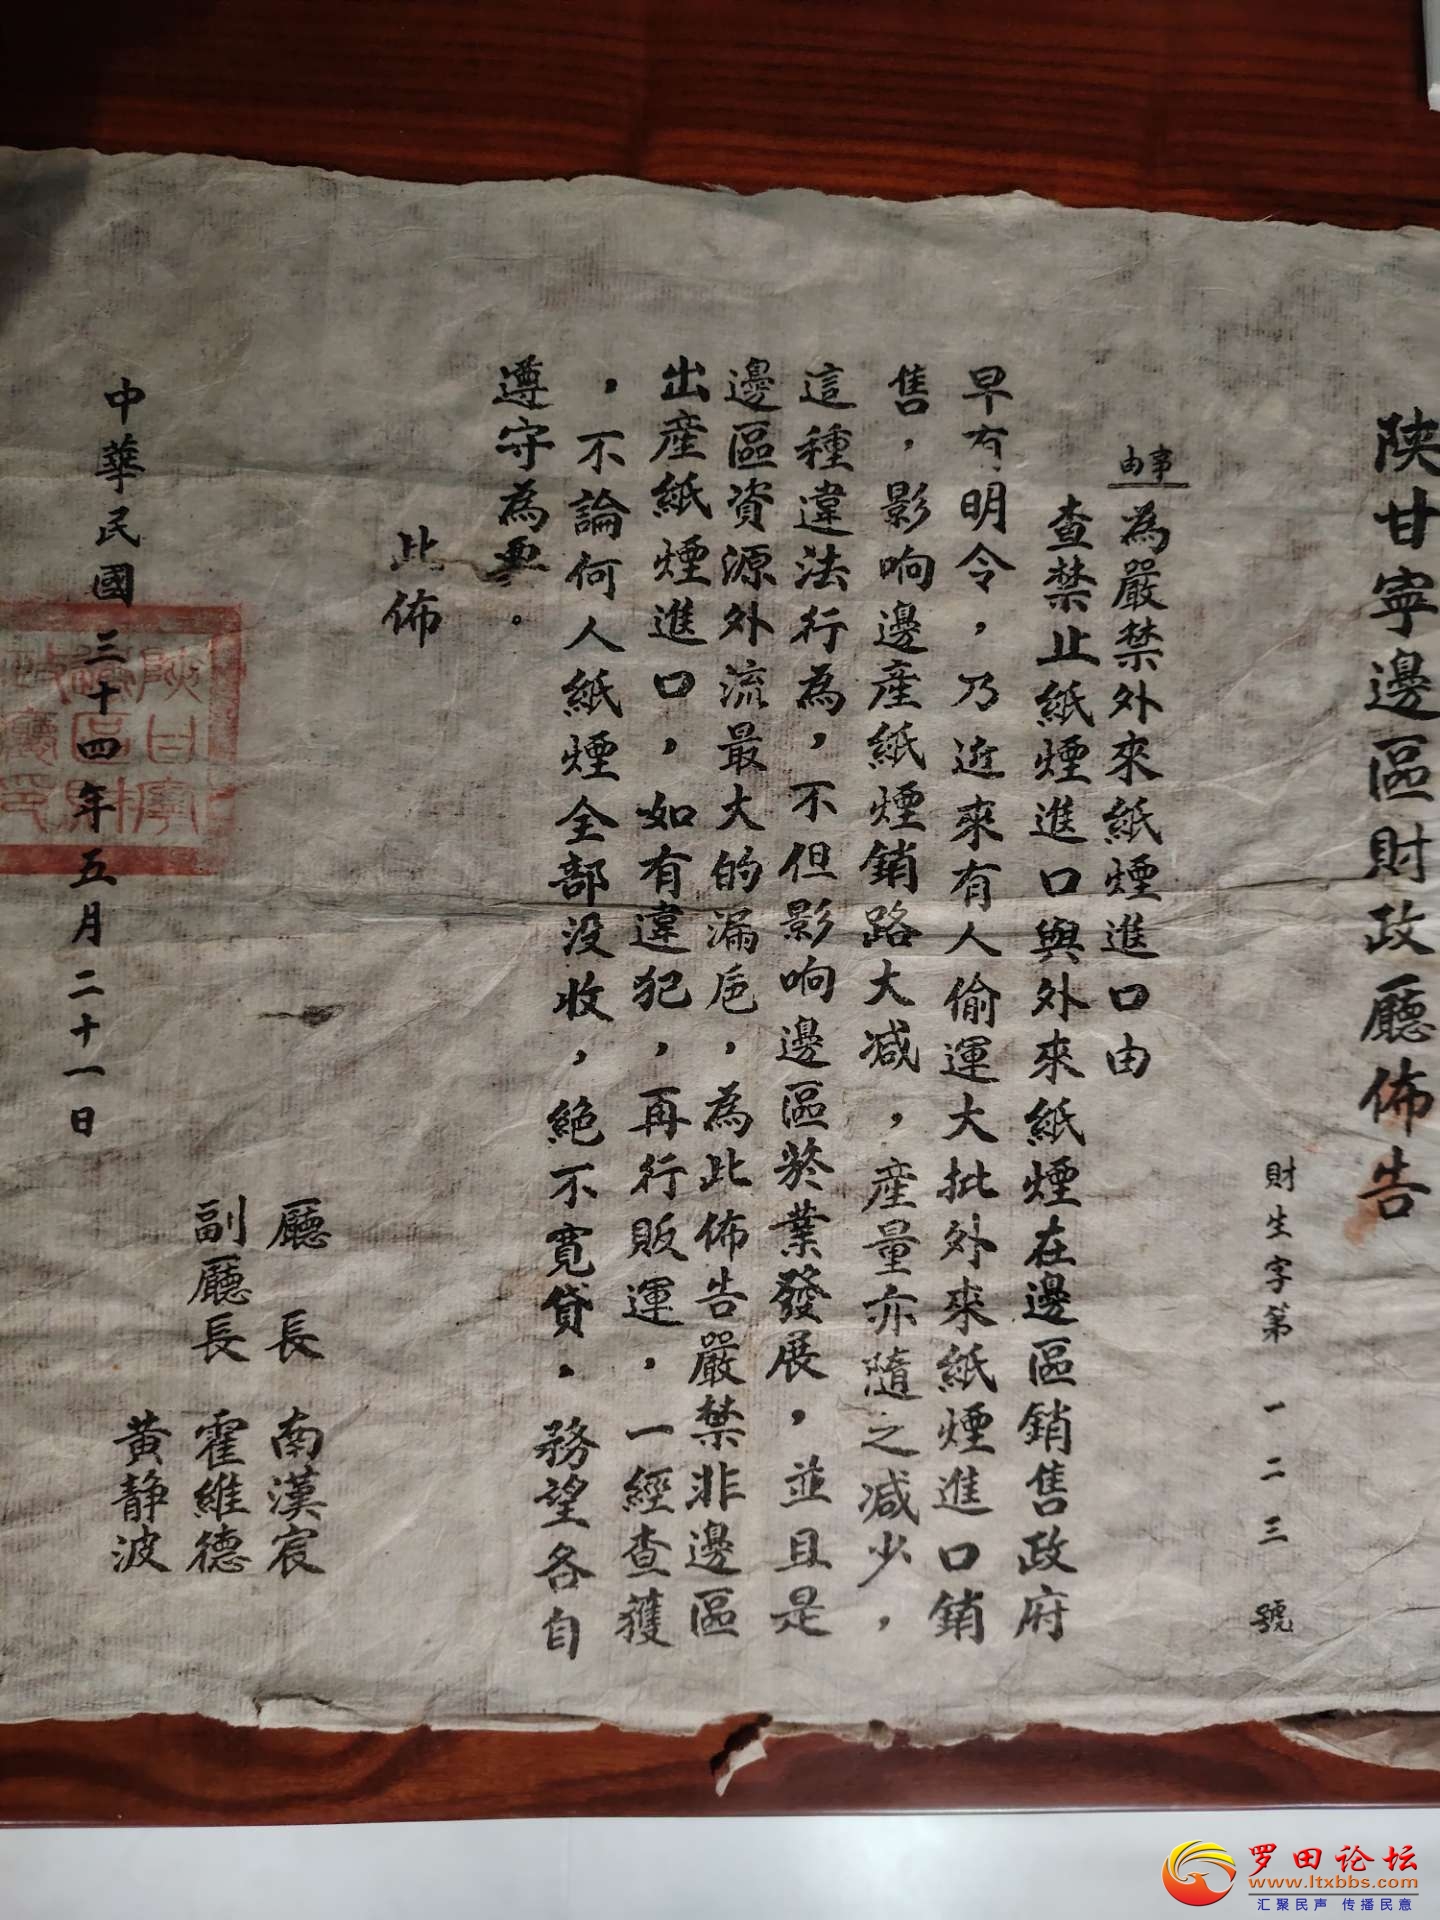 陝甘寧邊區財政廳佈告
財生字第一二三號
事由
為嚴禁外來紙煙進口由
查禁止紙煙進口與外來紙煙在邊區銷售政府
早有明令，乃近來有人偷運大批外來紙煙進口銷
售，影响邊產紙煙銷路大减，產量亦隨之减少，
這種違法行為，不但影响邊區菸業發展，並且是
邊區資源外流最大的漏巵，為此佈告嚴禁非邊區
出產紙煙進口，如有違犯，再行販運，一經查獲
，不論何人紙煙全部没收，絕不寬貸，務望各自
遵守為要．
此佈
廳長 南漢宸
副廳長 霍維德
黃静波
中華民國三十四年五月二十一日
陝甘寧
邊區財
政廳印
罗田论坛
www.ltxbbs.com
汇聚民声 传播民意